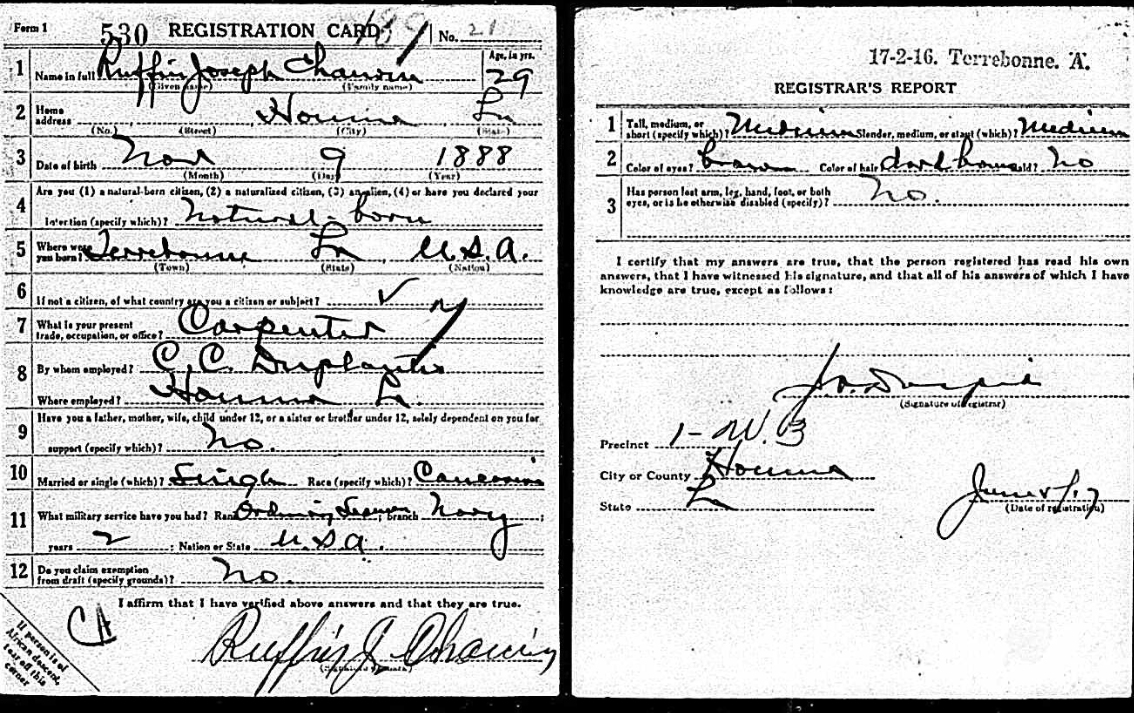 Form 1 530 REGISTRATION CARD 189 No. 21
1 Name in full Ruffin Joseph Chauvin Age, in yrs. 29
(Given name) (Family name)
2 Home address Houma La
(No.) (Street) (City) (State)
3 Date of birth Nov 9 1888
(Month) (Day) (Year)
Are you (1) a natural-born citizen, (2) a naturalized citizen, (3) an alien, (4) or have you declared your
4 intention (specify which)? natural-born
5 Where were you born? Terrebonne La U.S.A.
(Town) (State) (Nation)
6 If not a citizen, of what country are you a citizen or subject? ✓
7 What is your present trade, occupation, or office? Carpenter
8 By whom employed? C.C. Duplantis
Where employed? Houma La.
9 Have you a father, mother, wife, child under 12, or a sister or brother under 12, solely dependent on you for
support (specify which)? No.
10 Married or single (which)? Single Race (specify which)? Caucasian
11 What military service have you had? Rank Ordinary Seaman; branch Navy;
years 2; Nation or State U.S.A.
12 Do you claim exemption from draft (specify grounds)? No.
I affirm that I have verified above answers and that they are true.
Ruffin J. Chauvin
If person is of
African descent,
tear off this
corner
17-2-16. Terrebonne. A.
REGISTRAR'S REPORT
1 Tall, medium, or short (specify which)? Medium Slender, medium, or stout (which)? Medium
2 Color of eyes? brown Color of hair? dark brown Bald? No
3 Has person lost arm, leg, hand, foot, or both eyes, or is he otherwise disabled (specify)? No.
I certify that my answers are true, that the person registered has read his own
answers, that I have witnessed his signature, and that all of his answers of which I have
knowledge are true, except as follows:
(Signature of registrar)
Precinct 1-W.3
City or County Houma
State La
June 5/17
(Date of registration)